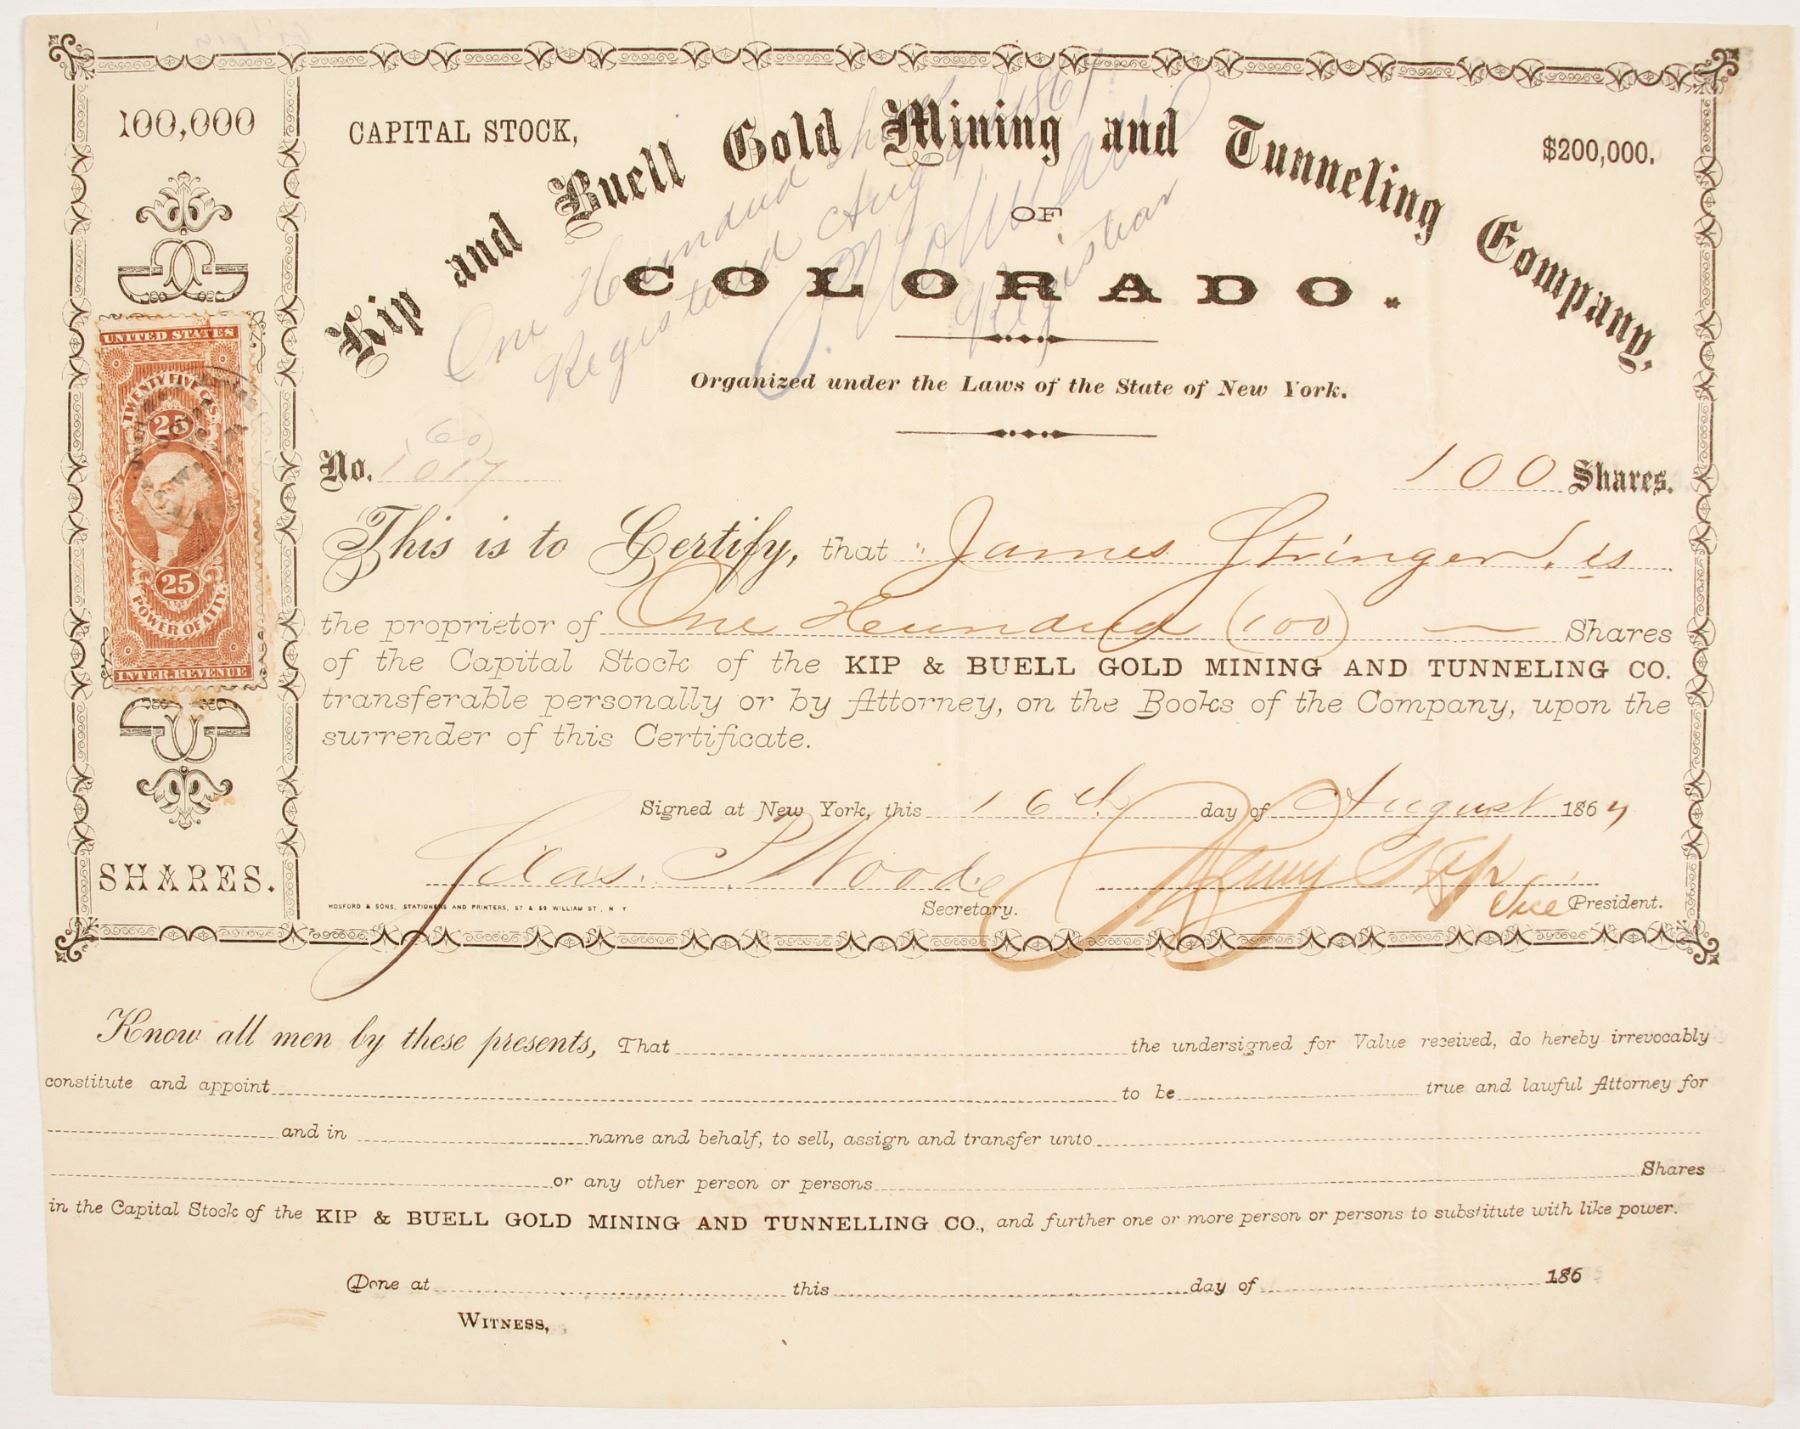 100,000
CAPITAL STOCK,
$200,000.
Kip and Buell Gold Mining and Tunneling Company,
OF
COLORADO.
One Hundred Shares
Registered Aug 1864
Registrar
Organized under the Laws of the State of New York.
UNITED STATES
TWENTY FIVE CTS.
25
25
POWER OF AT'Y
INTER. REVENUE
60
No. 1017
100 Shares.
This is to Certify, that James Stringer, is
the proprietor of One Hundred (100) Shares
of the Capital Stock of the KIP & BUELL GOLD MINING AND TUNNELING CO.
transferable personally or by Attorney, on the Books of the Company, upon the
surrender of this Certificate.
Signed at New York, this 16th day of August 1864
Woode
Henry Kip
HOSFORD & SONS, STATIONERS AND PRINTERS, 57 & 59 WILLIAM ST, N Y
Secretary.
Vice President.
SHARES.
Know all men by these presents, That the undersigned for Value received, do hereby irrevocably
constitute and appoint to be true and lawful Attorney for
and in name and behalf, to sell, assign and transfer unto
Shares
or any other person or persons
in the Capital Stock of the KIP & BUELL GOLD MINING AND TUNNELLING CO., and further one or more person or persons to substitute with like power.
Done at this day of 186
WITNESS,